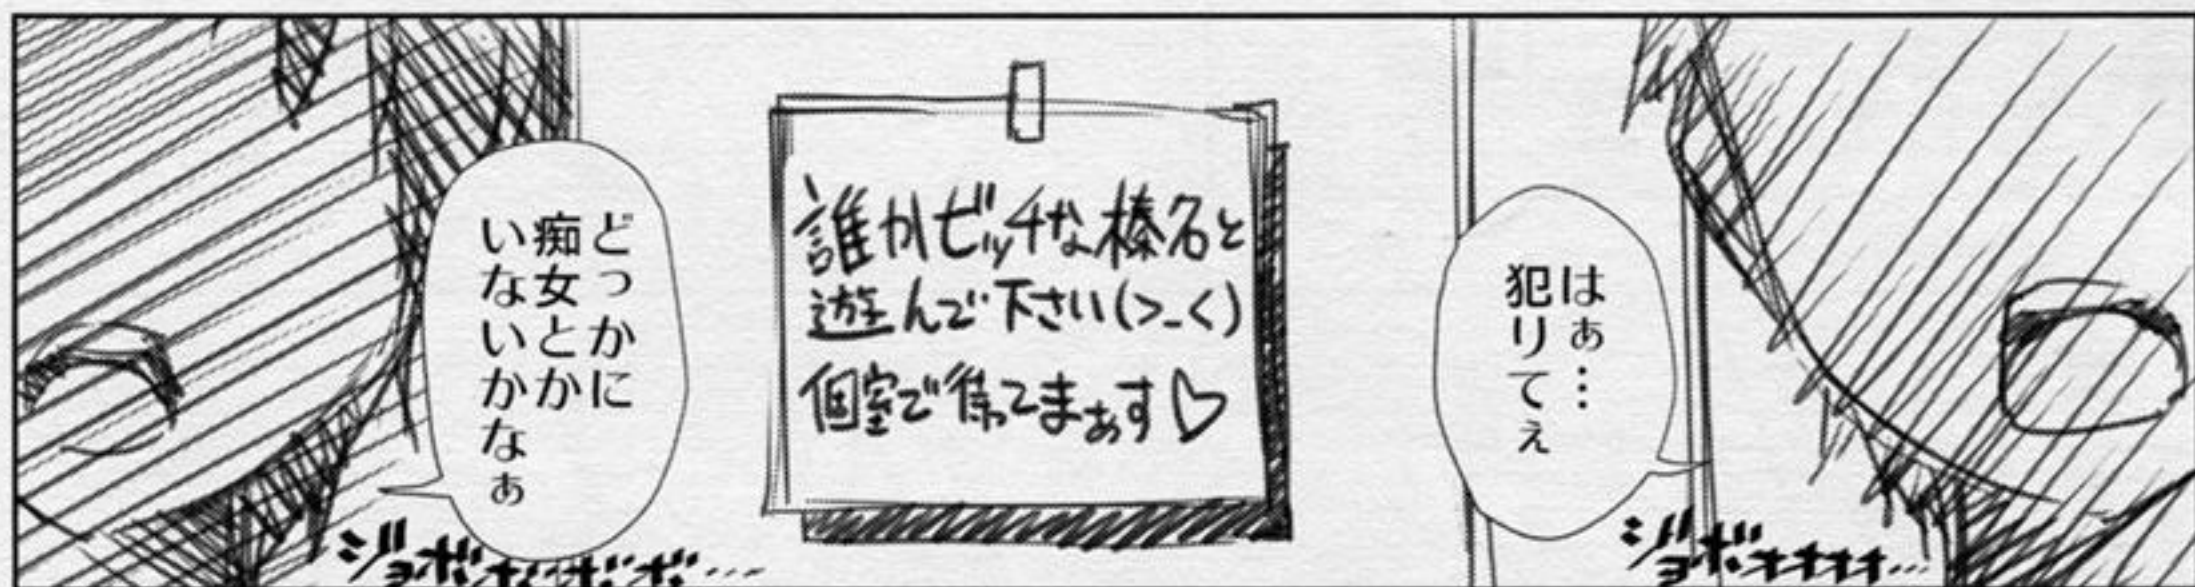 はぁ…
犯りてぇ
ジョボォォォォ…
誰かビッチな榛名と
遊んで下さい(>_<)
個室で待ってまぁす♡
どっかに
痴女とか
いないかなぁ